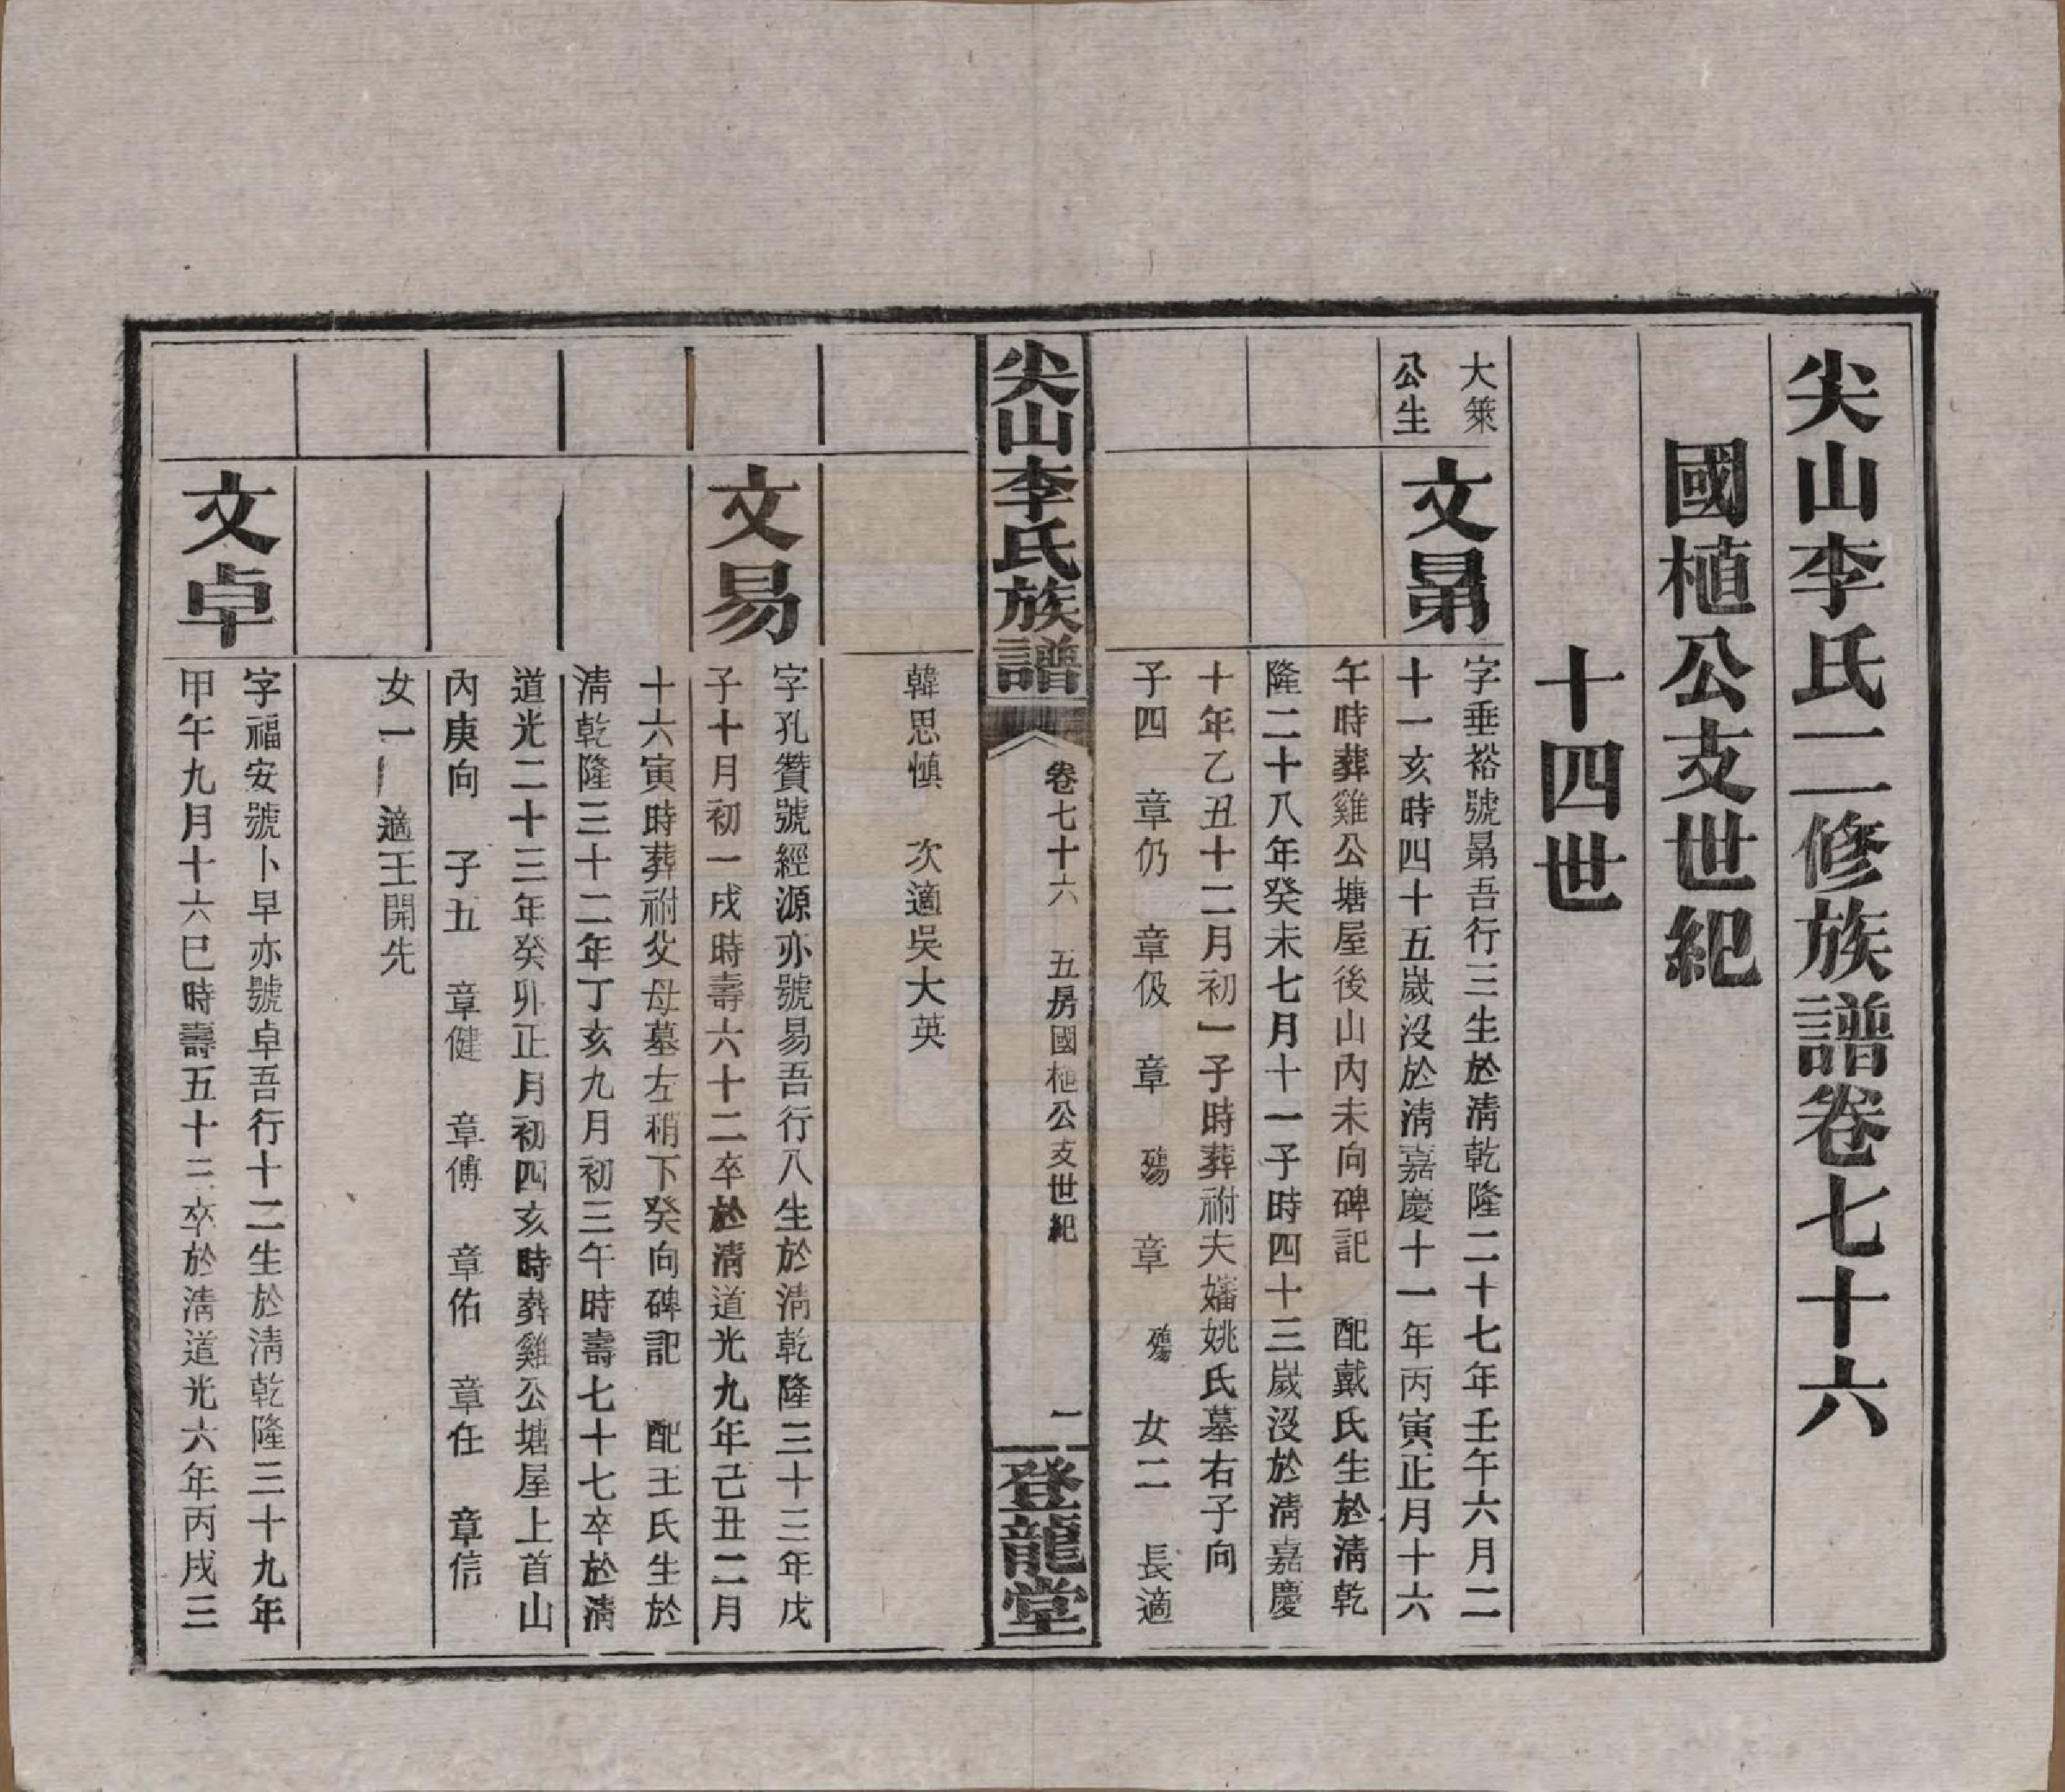 尖山李氏二修族譜卷七十六
國植公支世紀
十四世
大策
公生
文晜
字垂裕號晜吾行三生於清乾隆二十七年壬午六月二
十一亥時四十五歲沒於清嘉慶十一年丙寅正月十六
午時葬雞公塘屋後山內未向碑記 配戴氏生於清乾
隆二十八年癸未七月十一子時四十三歲沒於清嘉慶
十年乙丑十二月初一子時葬祔夫嬸姚氏墓右子向
子四 章仍 章伋 章 殤 章 殤 女二 長適
尖山李氏族譜
卷七十六 五房國植公支世紀
一
登龍堂
韓思慎 次適吳大英
文易
字孔贊號經源亦號易吾行八生於清乾隆三十三年戊
子十月初一戌時壽六十二卒於清道光九年己丑二月
十六寅時葬祔父母墓左稍下癸向碑記 配王氏生於
清乾隆三十二年丁亥九月初三午時壽七十七卒於清
道光二十三年癸卯正月初四亥時葬雞公塘屋上首山
內庚向 子五 章健 章傅 章佑 章任 章信
女一 適王開先
文卓
字福安號卜早亦號卓吾行十二生於清乾隆三十九年
甲午九月十六巳時壽五十三卒於清道光六年丙戌三